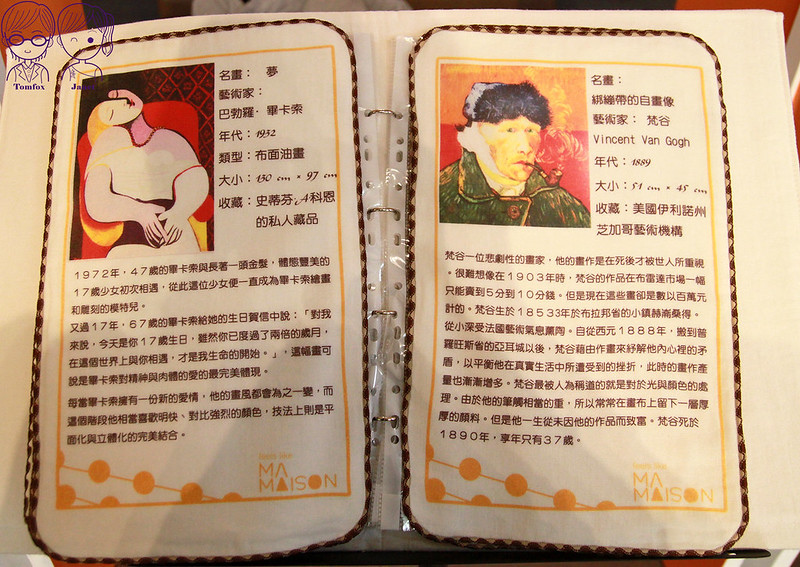 Tomfox
名畫： 夢
藝術家：
巴勃羅· 畢卡索
年代：1932
類型：布面油畫
大小：130 cm × 97 cm
收藏：史蒂芬.A科恩
的私人藏品
1972年，47歲的畢卡索與長著一頭金髮，體態豐美的
17歲少女初次相遇，從此這位少女便一直成為畢卡索繪畫
和雕刻的模特兒。
又過17年，67歲的畢卡索給她的生日賀信中說：「對我
來說，今天是你17歲生日，雖然你已度過了兩倍的歲月，
在這個世界上與你相遇，才是我生命的開始。」，這幅畫可
說是畢卡索對精神與肉體的愛的最完美體現。
每當畢卡索擁有一份新的愛情，他的畫風都會為之一變，而
這個階段他相當喜歡明快、對比強烈的顏色，技法上則是平
面化與立體化的完美結合。
MA
MAISON
名畫：
綁繃帶的自畫像
藝術家： 梵谷
Vincent Van Gogh
年代：1889
大小：51 cm × 45 cm
收藏：美國伊利諾州
芝加哥藝術機構
梵谷一位悲劇性的畫家，他的畫作是在死後才被世人所重視
。很難想像在1903年時，梵谷的作品在布雷達市場一幅
只能賣到5分到10分錢。但是現在這些畫卻是數以百萬元
計的。梵谷生於18533年於布拉邦省的小鎮赫崙桑得。
從小深受法國藝術氣息薰陶。自從西元1888年，搬到普
羅旺斯省的亞耳城以後，梵谷藉由作畫來紓解他內心裡的矛
盾，以平衡他在真實生活中所遭受到的挫折，此時的畫作產
量也漸漸增多。梵谷最被人為稱道的就是對於光與顏色的處
理。由於他的筆觸相當的重，所以常常在畫布上留下一層厚
厚的顏料。但是他一生從未因他的作品而致富。梵谷死於
1890年，享年只有37歲。
MA
MAISON